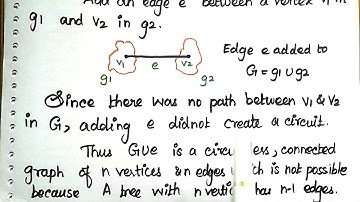 Add an edge e between a vertex v1 in
g1 and v2 in g2.
v1 e v2
g1 g2
Edge e added to
G = g1 ∪ g2
Since there was no path between v1 & v2
in G, adding e didnot create a circuit.
Thus G∪e is a circu ess, connected
graph of n vertices & n edges ch is not possible
because A tree with n vertic has n-1 edges.